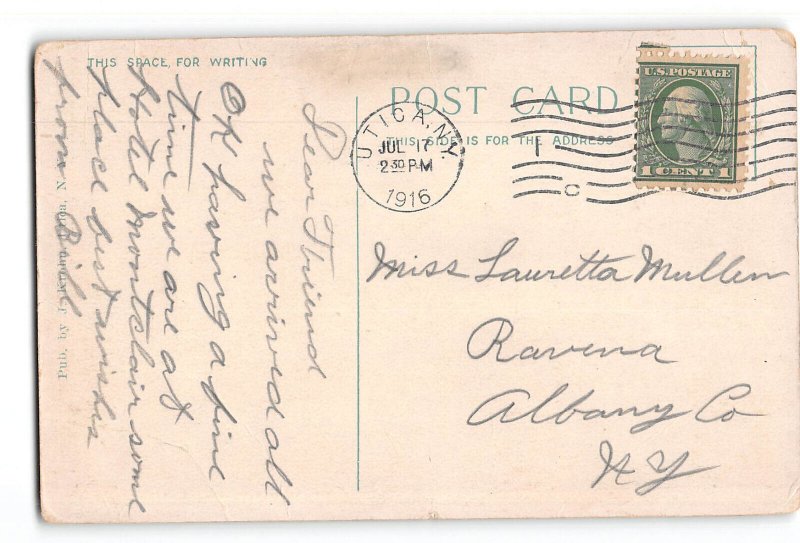 THIS SPACE FOR WRITING
POST CARD
THIS SIDE IS FOR THE ADDRESS
U.S. POSTAGE
1 CENT 1
UTICA, N.Y.
JUL 17
2 30 PM
1916
1
C
Dear Friend
we arrived all
OK having a fine
time we are at
Hotel Montclair some
place best wishes
from Bill
Miss Lauretta Mullen
Ravena
Albany Co
N Y
Pub. by J. N.